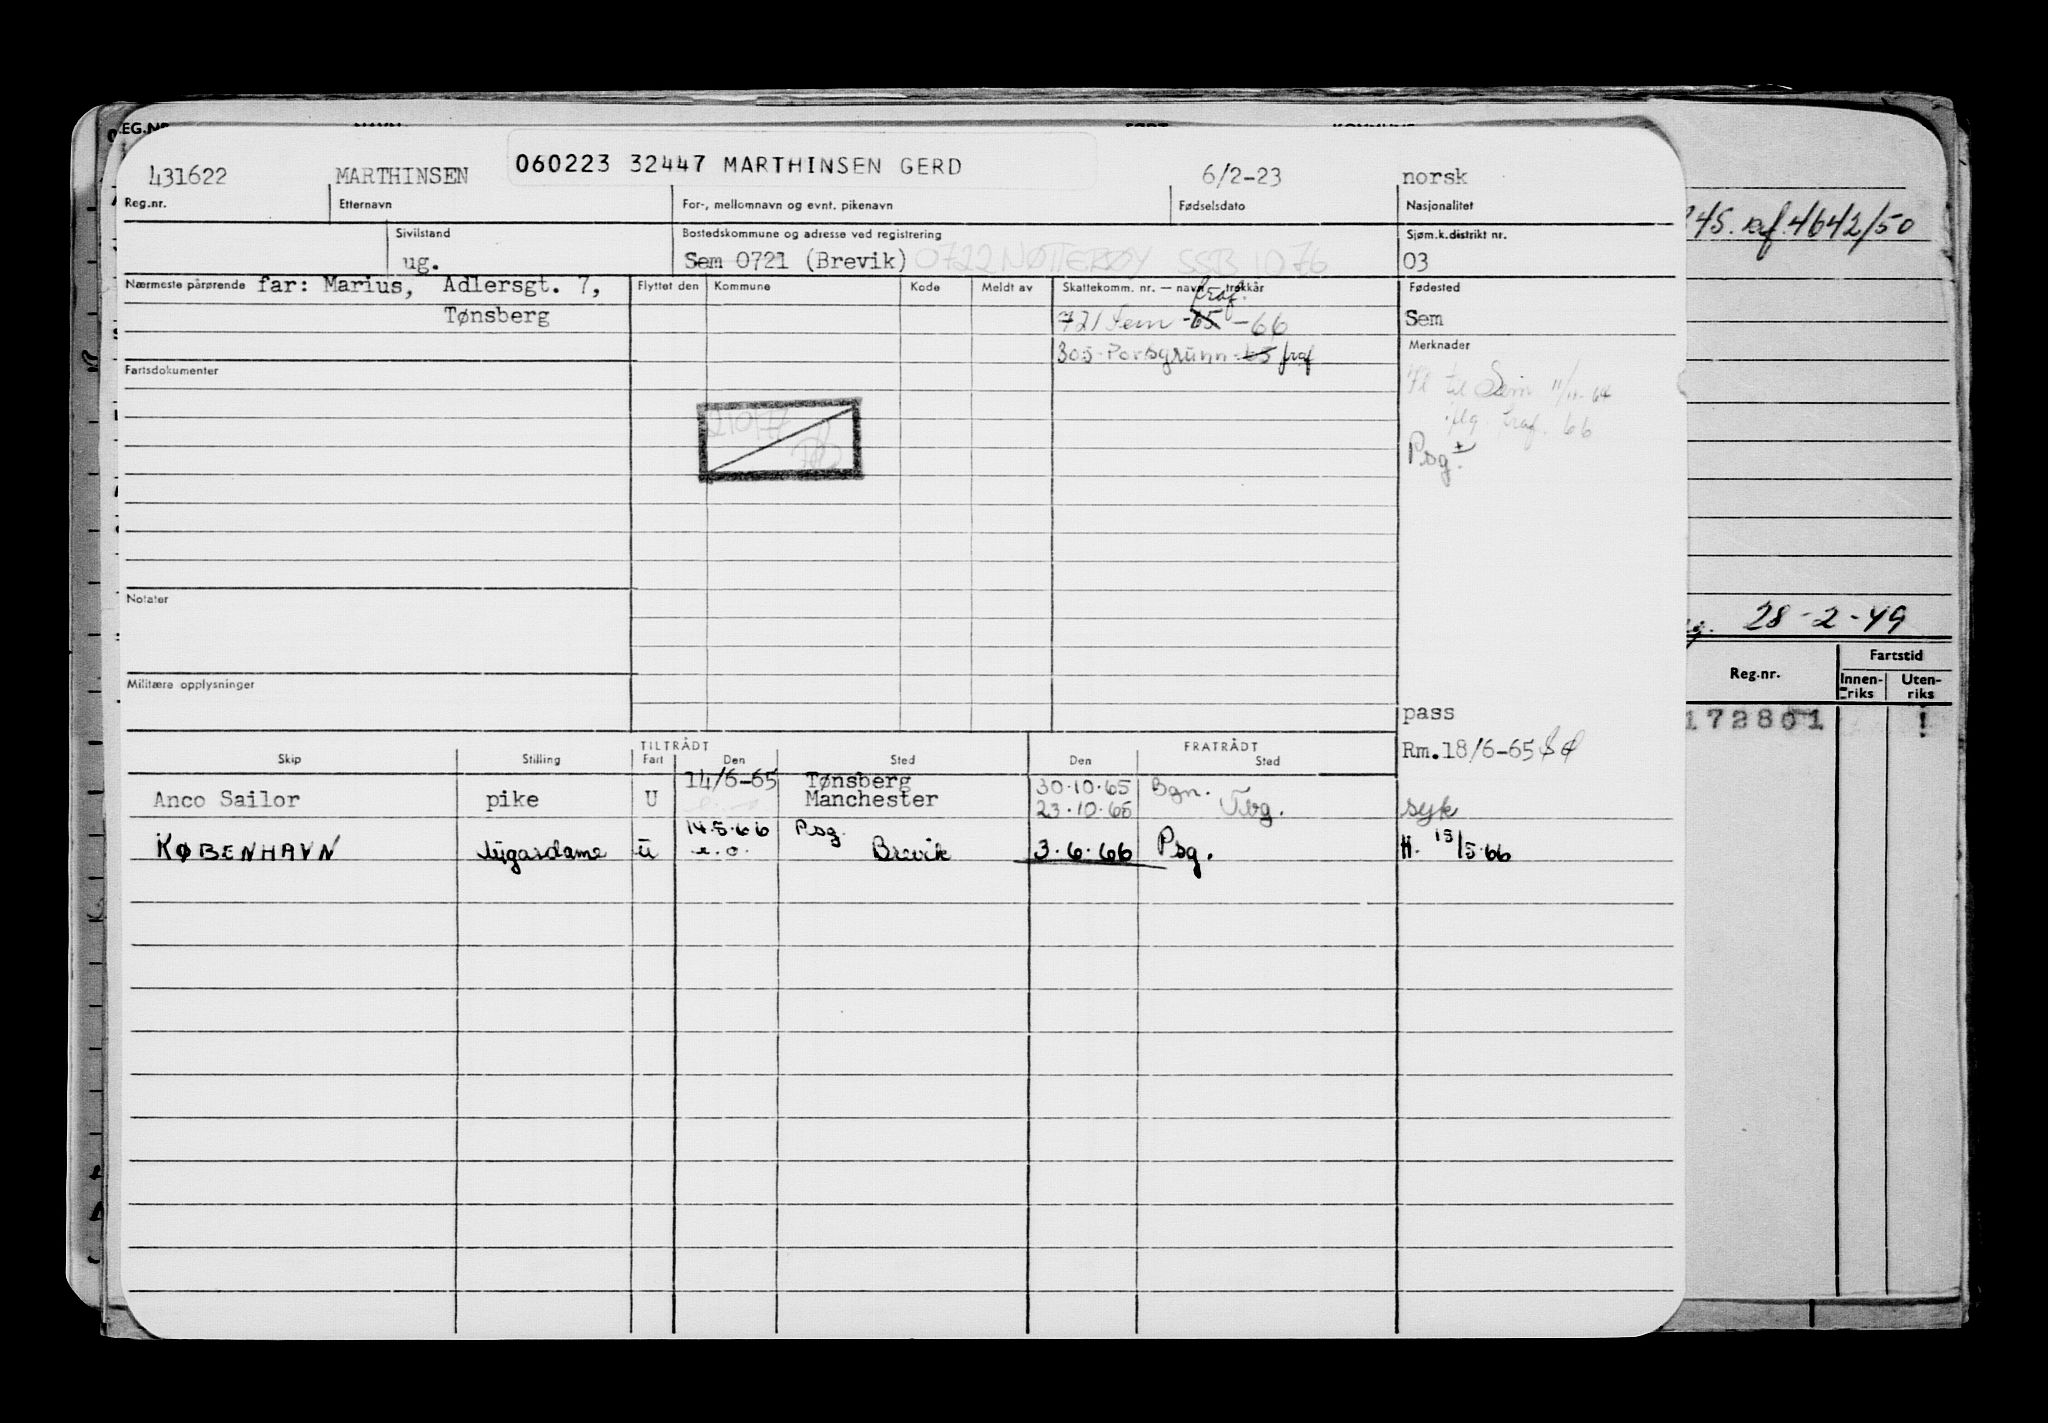 REG.NR. NAVN: FØDT KOMMUNE
431622 MARTHINSEN 060223 32447 MARTHINSEN GERD 6/2-23 norsk
Reg.nr. Etternavn For-, mellomnavn og evnt. pikenavn Fødselsdato Nasjonalitet
Sivilstand Bostedskommune og adresse ved registrering Sjøm.k.distrikt nr.
ug. Sem 0721 (Brevik) 0722 NØTTERØY SSB 1076 03
Nærmeste pårørende far: Marius, Adlersgt. 7, Flyttet den Kommune Kode Meldt av Skattekomm. nr. — navn — trekkår Fødested
Tønsberg
fraf.
721 Sem -65 -66 Sem
305-Porsgrunn-65 fraf Merknader
Fartsdokumenter
Fl til Sem 11/11-64
flg. traf. 66
Psg.
Notater
Militære opplysninger
pass
Rm.18/6-65
TILTRÅDT FRATRÅDT
Skip Stilling Fart Den Sted Den Sted
14/6-65 Tønsberg 30.10.65 Bgn.
Anco Sailor pike U Manchester 23.10.65 Tbg. syk
14.5.66 Psg.
KØBENHAVN lugardame U e.o. Brevik 3.6.66 Psg. H. 15/5.66
245. ref. 4642/50
28-2-49
Reg.nr. Fartstid
Innen-riks Uten-riks
172801 !